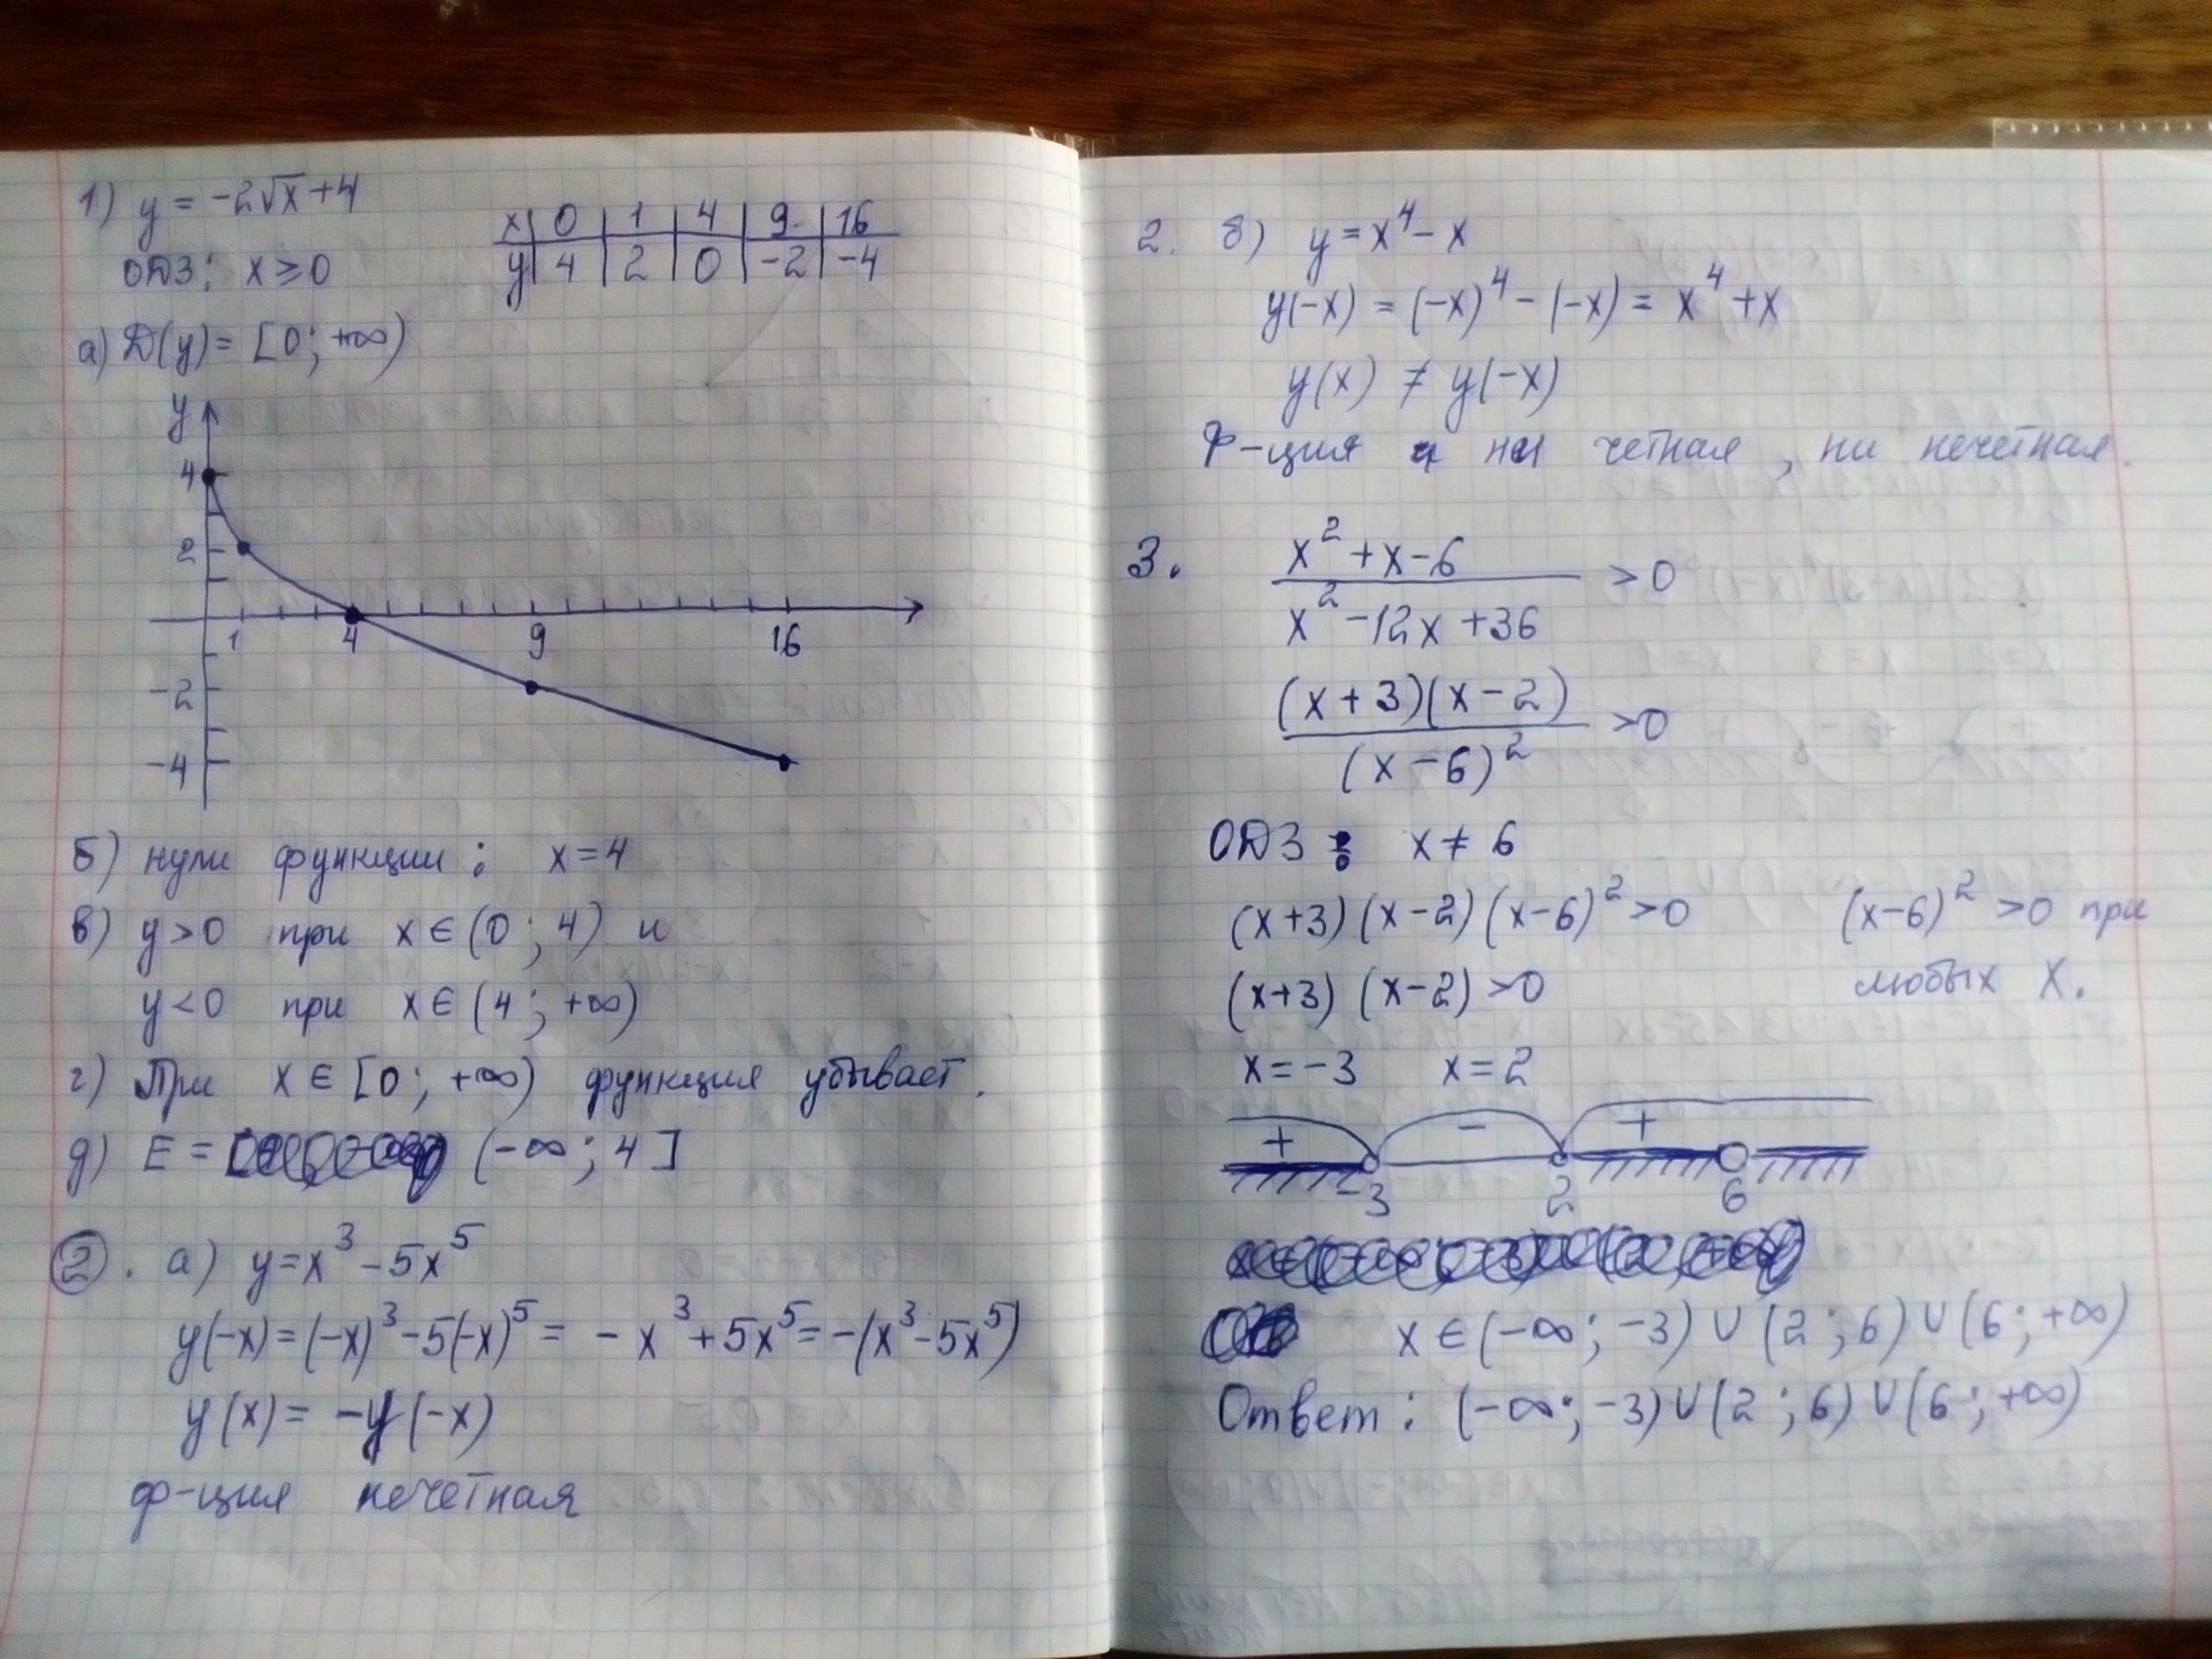 1) y = -2√x + 4
ОДЗ: x ≥ 0
x | 0 | 1 | 4 | 9 | 16
y | 4 | 2 | 0 | -2 | -4
а) D(y) = [0; +∞)
y
4
2
1 4 9 16
-2
-4
б) нули функции: x = 4
в) y > 0 при x ∈ (0; 4) и
y < 0 при x ∈ (4; +∞)
г) При x ∈ [0; +∞) функция убывает.
д) E = (-∞; 4]
2. а) y = x³ - 5x⁵
y(-x) = (-x)³ - 5(-x)⁵ = - x³ + 5x⁵ = -(x³ - 5x⁵)
y(x) = -y(-x)
ф-ция нечетная
2. б) y = x⁴ - x
y(-x) = (-x)⁴ - (-x) = x⁴ + x
y(x) ≠ y(-x)
Ф-ция ни четная, ни нечетная.
3. (x² + x - 6)/(x² - 12x + 36) > 0
((x + 3)(x - 2))/((x - 6)²) > 0
ОДЗ: x ≠ 6
(x+3)(x-2)(x-6)² > 0 (x-6)² > 0 при
(x+3)(x-2) > 0 любых x.
x = -3 x = 2
+ - +
-3 2 6
x ∈ (-∞; -3) ∪ (2; 6) ∪ (6; +∞)
Ответ: (-∞; -3) ∪ (2; 6) ∪ (6; +∞)